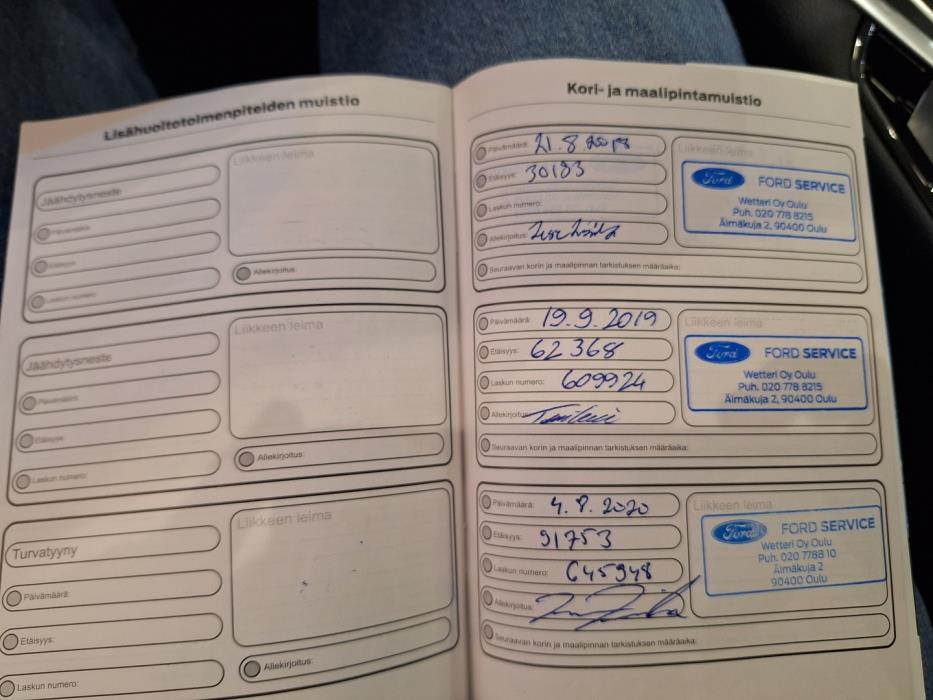 Lisähuoltotoimenpiteiden muistio
Jäähdytysneste
Päivämäärä:
Etäisyys:
Laskun numero:
Liikkeen leima
Allekirjoitus:
Jäähdytysneste
Päivämäärä:
Etäisyys:
Laskun numero:
Liikkeen leima
Allekirjoitus:
Turvatyyny
Päivämäärä:
Etäisyys:
Laskun numero:
Liikkeen leima
Allekirjoitus:
Kori- ja maalipintamuistio
Päivämäärä: 21.8.2018
Etäisyys: 30183
Laskun numero:
Allekirjoitus:
Liikkeen leima
Ford FORD SERVICE
Wetteri Oy Oulu
Puh. 020 778 8215
Älmäkuja 2, 90400 Oulu
Seuraavan korin ja maalipinnan tarkistuksen määräaika:
Päivämäärä: 19.9.2019
Etäisyys: 62368
Laskun numero: 609924
Allekirjoitus:
Liikkeen leima
Ford FORD SERVICE
Wetteri Oy Oulu
Puh. 020 778 8215
Äimäkuja 2, 90400 Oulu
Seuraavan korin ja maalipinnan tarkistuksen määräaika:
Päivämäärä: 4.8.2020
Etäisyys: 91753
Laskun numero: 645948
Allekirjoitus:
Liikkeen leima
Ford FORD SERVICE
Wetteri Oy Oulu
Puh. 020 7788 10
Äimäkuja 2
90400 Oulu
Seuraavan korin ja maalipinnan tarkistuksen määräaika: